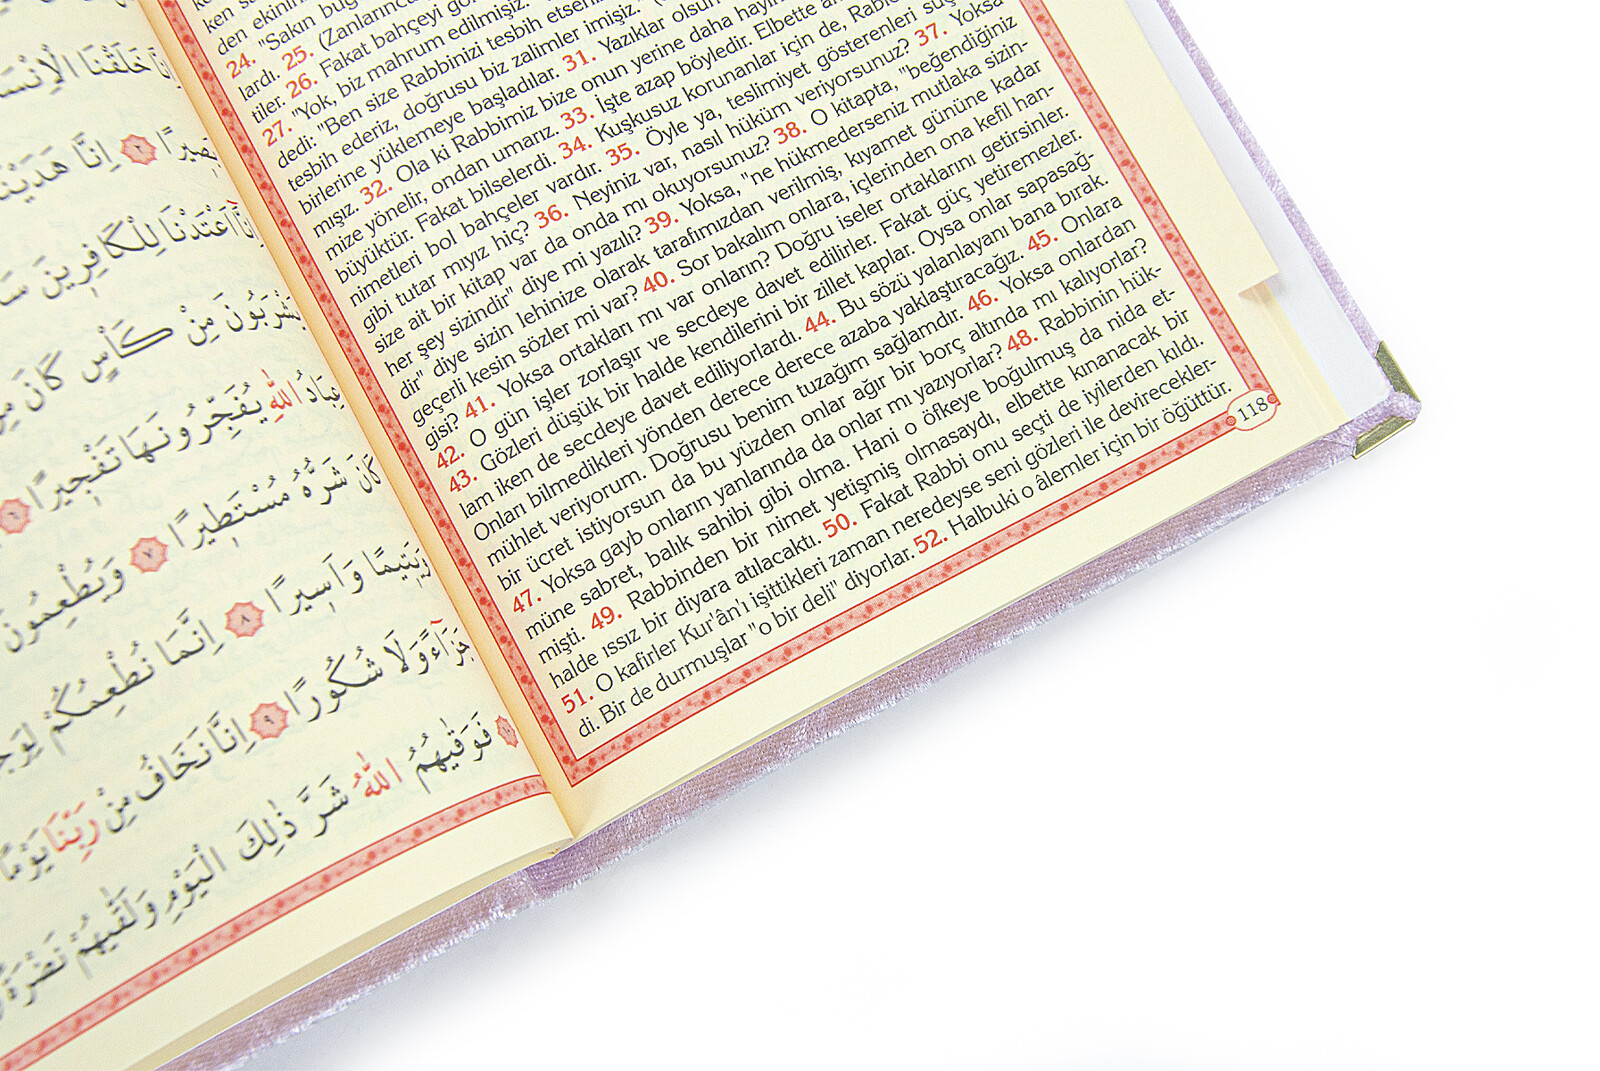 خَلَقْنَا الْاِنْسَا
اِنَّا هَدَيْنَا
اِنَّا اَعْتَدْنَا لِلْكَافِرِينَ سَ
يَشْرَبُونَ مِنْ كَأْسٍ كَانَ مِزَ
عِبَادُ اللّٰهِ يُفَجِّرُونَهَا تَفْجِيرًا ٦
كَانَ شَرُّهُ مُسْتَطِيرًا ٧ وَيُطْعِمُونَ
وَيَتِيمًا وَاَسِيرًا ٨ اِنَّمَا نُطْعِمُكُمْ لِوَجْ
جَزَٓاءً وَلَا شُكُورًا ٩ اِنَّا نَخَافُ مِنْ رَبِّنَا يَوْمًا
١٠ فَوَقٰيهُمُ اللّٰهُ شَرَّ ذٰلِكَ الْيَوْمِ وَلَقّٰيهُمْ نَضْرَةً
den ekinini
24. "Sakın bug
lardı. 25. (Zanlarınca
tiler. 26. Fakat bahçeyi gö
27. "Yok, biz mahrum edilmişiz."
dedi: "Ben size Rabbinizi tesbih etseni
tesbih ederiz, doğrusu biz zalimler imişiz." (
birlerine yüklemeye başladılar. 31. Yazıklar olsun
mışız. 32. Ola ki Rabbimiz bize onun yerine daha hayır
mize yönelir, ondan umarız. 33. İşte azap böyledir. Elbette
büyüktür. Fakat bilselerdi. 34. Kuşkusuz korunanlar için de, Rable
nimetleri bol bahçeler vardır. 35. Öyle ya, teslimiyet gösterenleri suç
gibi tutar mıyız hiç? 36. Neyiniz var, nasıl hüküm veriyorsunuz? 37. Yoksa
size ait bir kitap var da onda mı okuyorsunuz? 38. O kitapta, "beğendiğiniz
her şey sizindir" diye mi yazılı? 39. Yoksa, "ne hükmederseniz mutlaka sizin-
dir" diye sizin lehinize olarak tarafımızdan verilmiş, kıyamet gününe kadar
geçerli kesin sözler mi var? 40. Sor bakalım onlara, içlerinden ona kefil han-
gisi? 41. Yoksa ortakları mı var onların? Doğru iseler ortaklarını getirsinler.
42. O gün işler zorlaşır ve secdeye davet edilirler. Fakat güç yetiremezler.
43. Gözleri düşük bir halde kendilerini bir zillet kaplar. Oysa onlar sapasağ-
lam iken de secdeye davet ediliyorlardı. 44. Bu sözü yalanlayanı bana bırak.
Onları bilmedikleri yönden derece derece azaba yaklaştıracağız. 45. Onlara
mühlet veriyorum. Doğrusu benim tuzağım sağlamdır. 46. Yoksa onlardan
bir ücret istiyorsun da bu yüzden onlar ağır bir borç altında mı kalıyorlar?
47. Yoksa gayb onların yanlarında da onlar mı yazıyorlar? 48. Rabbinin hük-
müne sabret, balık sahibi gibi olma. Hani o öfkeye boğulmuş da nida et-
mişti. 49. Rabbinden bir nimet yetişmiş olmasaydı, elbette kınanacak bir
halde ıssız bir diyara atılacaktı. 50. Fakat Rabbi onu seçti de iyilerden kıldı.
51. O kafirler Kur'ân'ı işittikleri zaman neredeyse seni gözleri ile devirecekler-
di. Bir de durmuşlar "o bir deli" diyorlar. 52. Halbuki o âlemler için bir öğüttür.
118